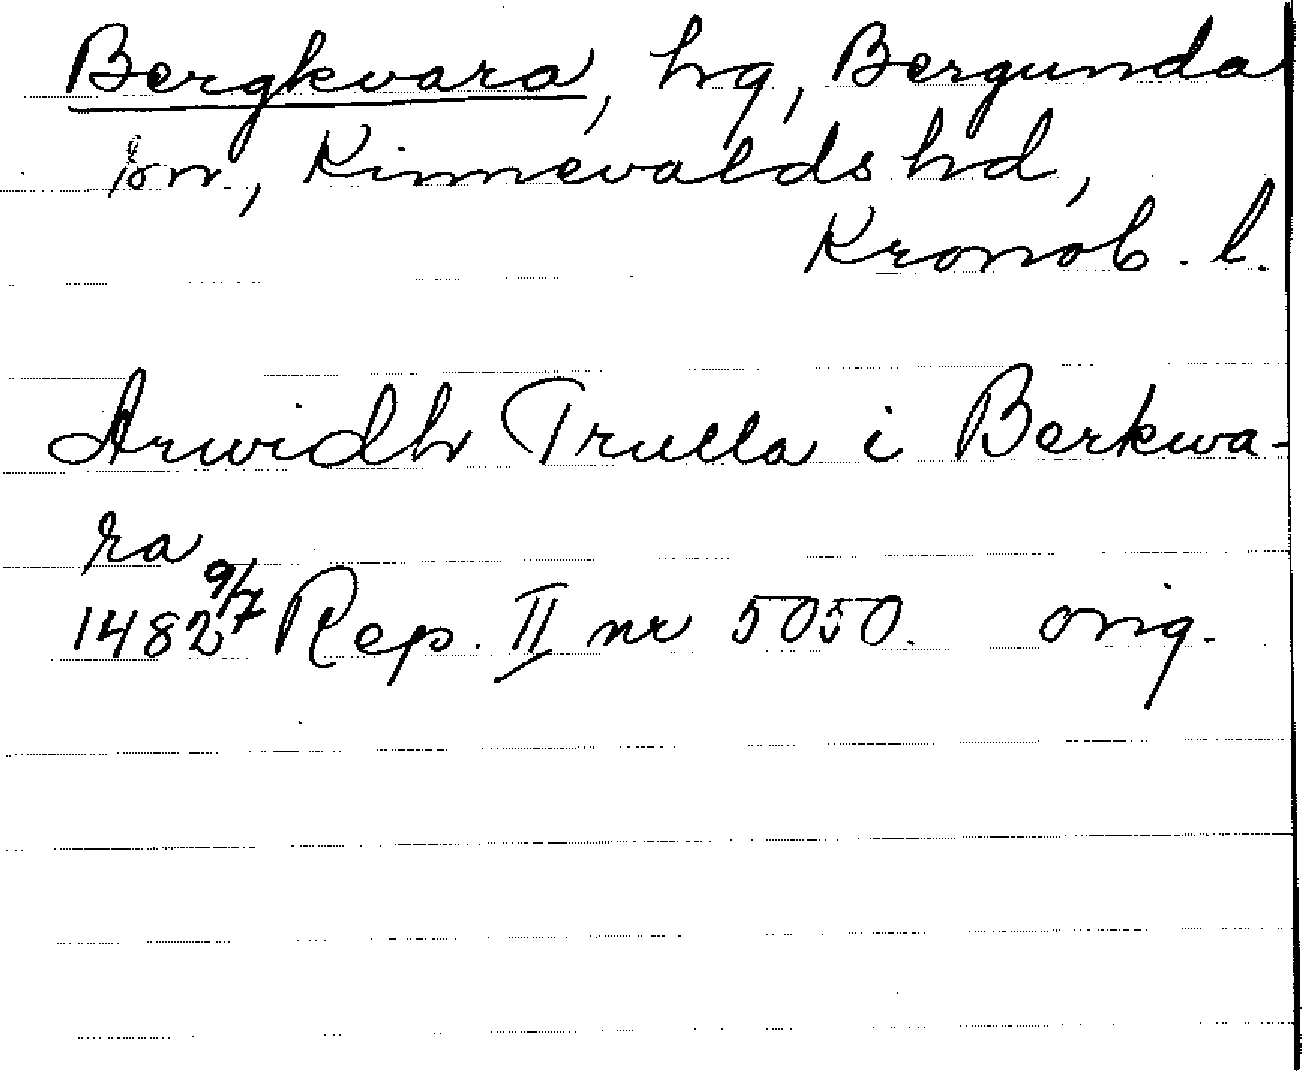 Bergkvara, hg, Bergunda
sn, Kinnevalds hd,
Kronob. l.
Arwidh Trulla i Berkwa-
ra
1482 9/7 Rep. II nr 5050. orig.